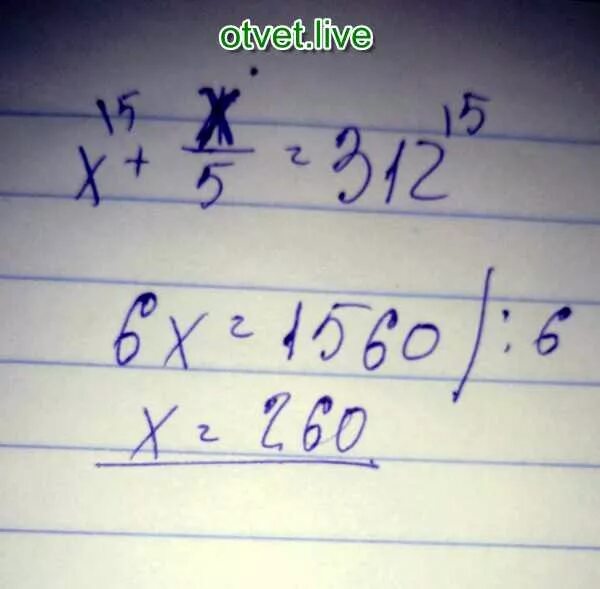 otvet.live
x^15 + x/5 = 312^15
6x = 1560 / : 6
x = 260